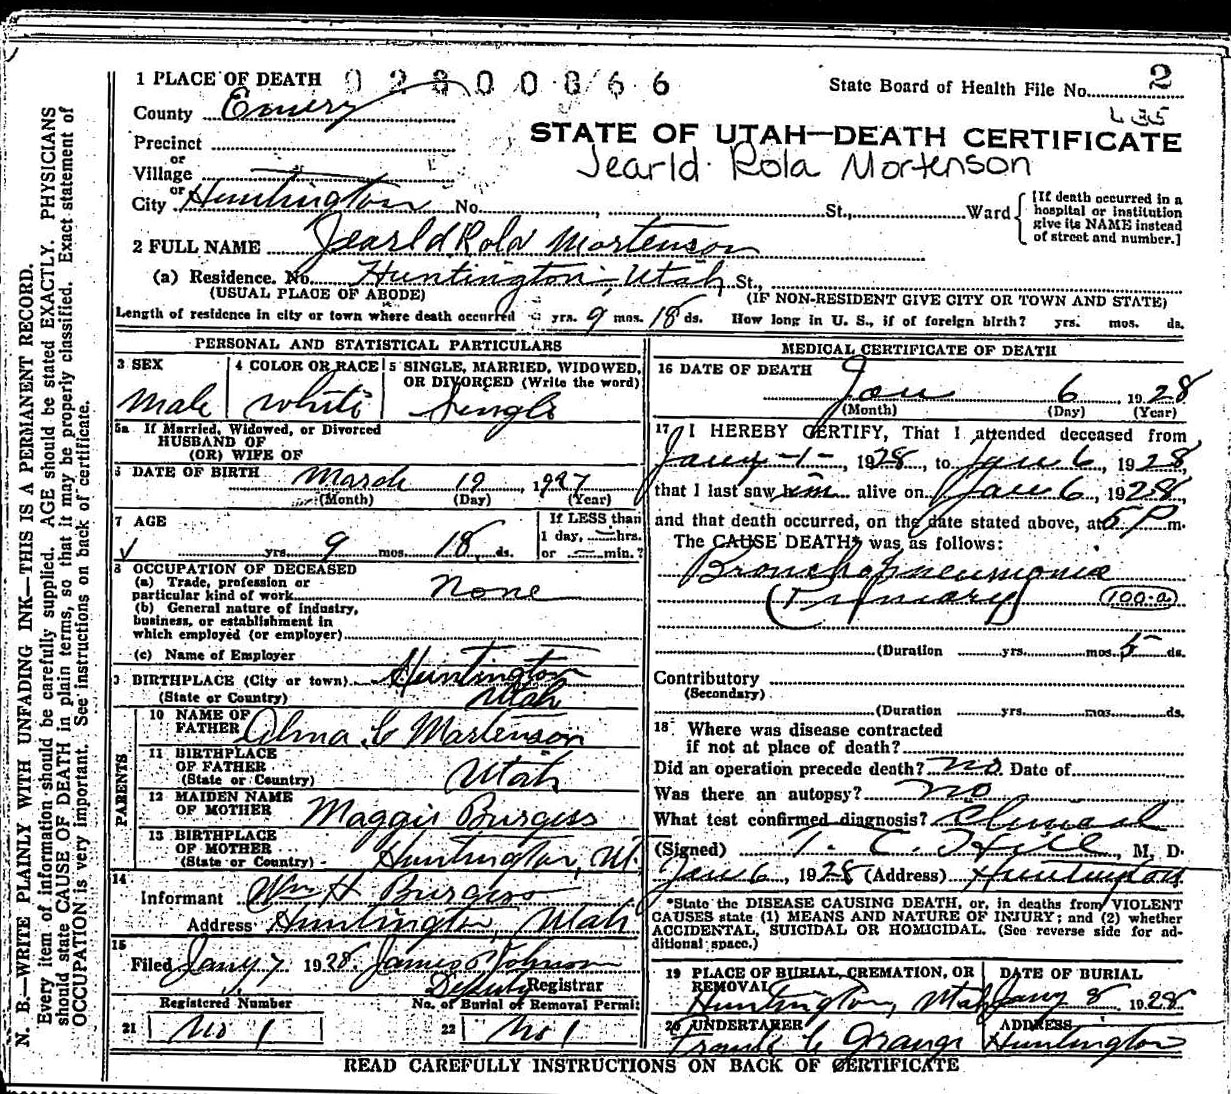 1 PLACE OF DEATH 0 2 8 0 0 0 6 6
State Board of Health File No. 2
County Emery
435
STATE OF UTAH—DEATH CERTIFICATE
Precinct
or
Jearld Rola Mortenson
Village
or
City Huntington No. , St., Ward
[If death occurred in a
hospital or institution
give its NAME instead
of street and number.]
2 FULL NAME Jearld Rola Mortenson
(a) Residence. No. Huntington, Utah St.,
(USUAL PLACE OF ABODE) (IF NON-RESIDENT GIVE CITY OR TOWN AND STATE)
Length of residence in city or town where death occurred yrs. 9 mos. 18 ds. How long in U. S., if of foreign birth? yrs. mos. ds.
PERSONAL AND STATISTICAL PARTICULARS
3 SEX
Male
4 COLOR OR RACE
White
5 SINGLE, MARRIED, WIDOWED,
OR DIVORCED (Write the word)
Single
5a If Married, Widowed, or Divorced
HUSBAND OF
(OR) WIFE OF
6 DATE OF BIRTH March 19 1927
(Month) (Day) (Year)
7 AGE
yrs. 9 mos. 18 ds.
If LESS than
1 day, — hrs.
or — min.?
8 OCCUPATION OF DECEASED
(a) Trade, profession or
particular kind of work None
(b) General nature of industry,
business, or establishment in
which employed (or employer)
(c) Name of Employer
9 BIRTHPLACE (City or town) Huntington
(State or Country) Utah
PARENTS
10 NAME OF
FATHER Alma C Mortenson
11 BIRTHPLACE
OF FATHER
(State or Country) Utah
12 MAIDEN NAME
OF MOTHER Maggie Burgess
13 BIRTHPLACE
OF MOTHER
(State or Country) Huntington, Ut.
14
Informant Wm H Burgess
Address Huntington, Utah
15
Filed Jany 7 1928 James P Johnson
Deputy Registrar
Registered Number No. of Burial of Removal Permit
21 No 1 22 No 1
MEDICAL CERTIFICATE OF DEATH
16 DATE OF DEATH
Jan 6 1928
(Month) (Day) (Year)
17 I HEREBY CERTIFY, That I attended deceased from
Jany -1-, 1928, to Jan 6, 1928,
that I last saw him alive on Jan 6, 1928,
and that death occurred, on the date stated above, at 5 P m.
The CAUSE DEATH* was as follows:
Bronchopneumonia
(Primary) 100-a
(Duration yrs. mos. 5 ds.
Contributory
(Secondary)
(Duration yrs. mos. ds.
18 Where was disease contracted
if not at place of death?
Did an operation precede death? No Date of
Was there an autopsy? No
What test confirmed diagnosis? Clinical
(Signed) T. C. Hill, M. D.
Jan 6, 1928 (Address) Huntington
*State the DISEASE CAUSING DEATH, or, in deaths from VIOLENT
CAUSES state (1) MEANS AND NATURE OF INJURY; and (2) whether
ACCIDENTAL, SUICIDAL OR HOMICIDAL. (See reverse side for ad-
ditional space.)
19 PLACE OF BURIAL, CREMATION, OR
REMOVAL
Huntington, Utah
DATE OF BURIAL
Jany 8 1928
20 UNDERTAKER
Frank C Grange
ADDRESS
Huntington
READ CAREFULLY INSTRUCTIONS ON BACK OF CERTIFICATE
N. B.—WRITE PLAINLY WITH UNFADING INK—THIS IS A PERMANENT RECORD.
Every item of information should be carefully supplied. AGE should be stated EXACTLY. PHYSICIANS
should state CAUSE OF DEATH in plain terms, so that it may be properly classified. Exact statement of
OCCUPATION is very important. See instructions on back of certificate.